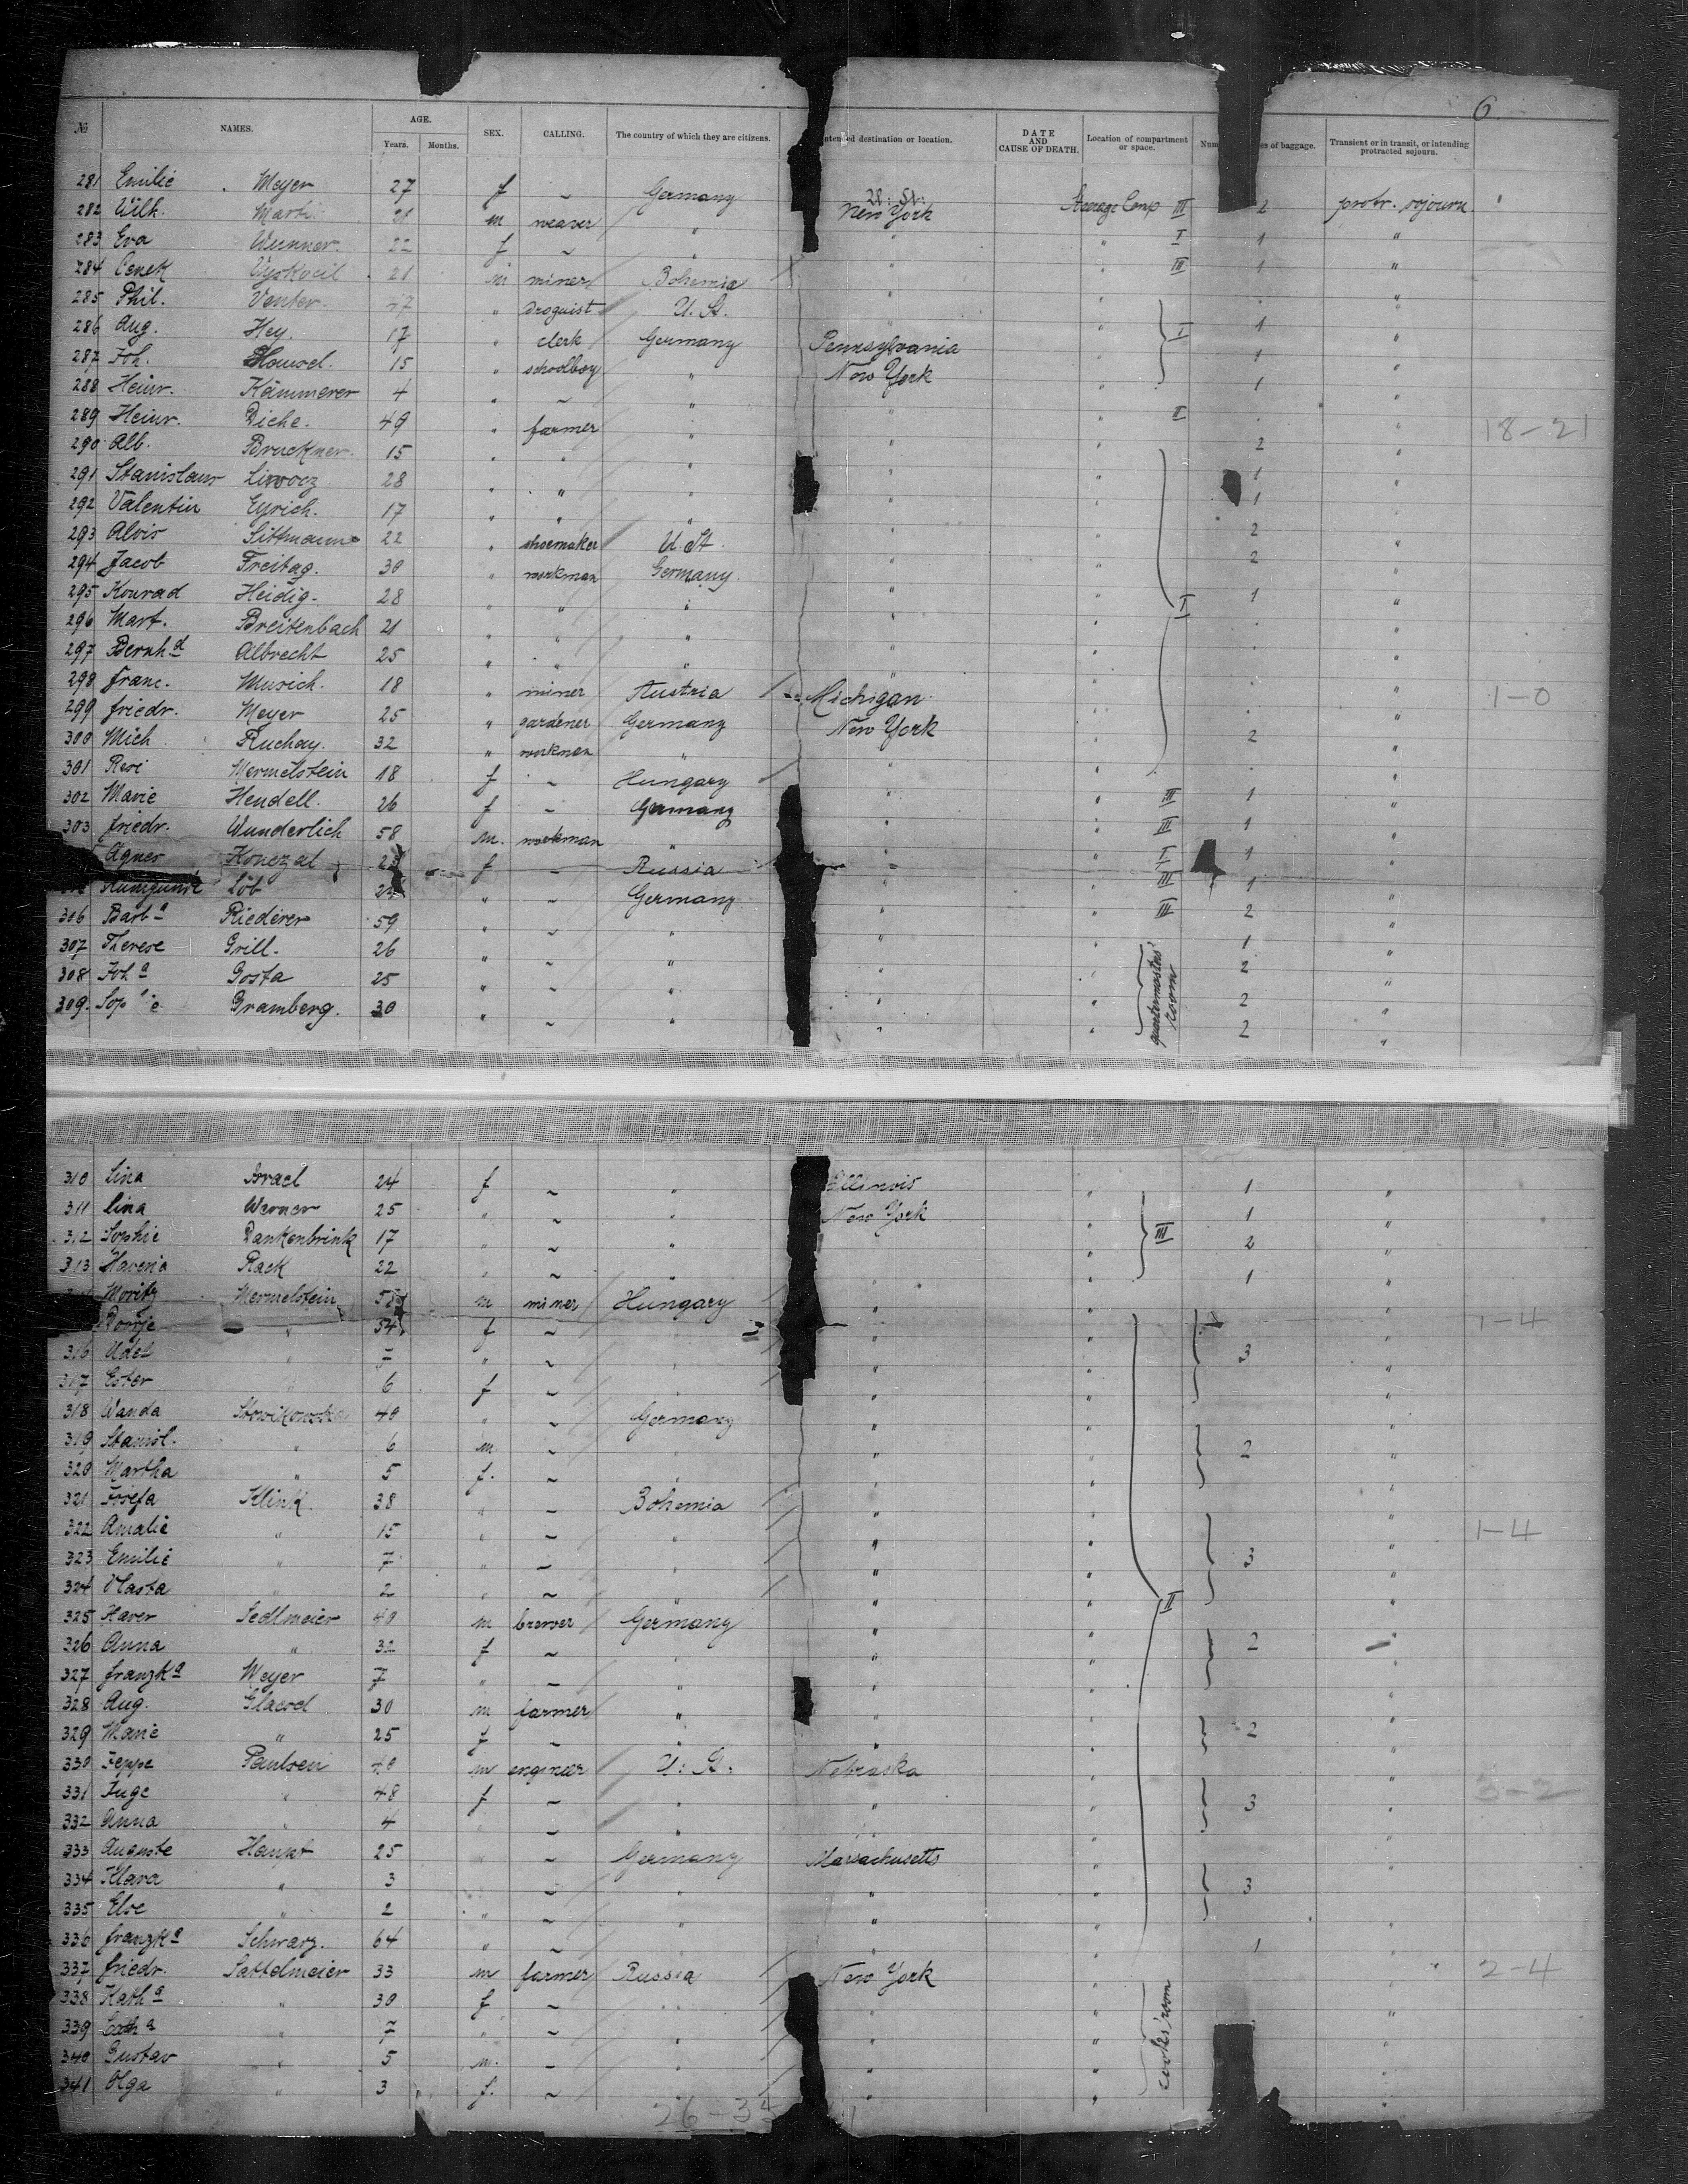 6
№ NAMES. AGE. Years. Months. SEX. CALLING. The country of which they are citizens. Intended destination or location. DATE AND CAUSE OF DEATH. Location of compartment or space. of baggage. Transient or in transit, or intending protracted sojourn.
281 Emilie Meyer 27 f ~ Germany U. St. New York Steerage Comp III 2 protr. sojourn
282 Wilh. 21 m weaver " " " I 1 "
283 Eva Wunner 22 f ~ " " " III 1 "
284 Cenek Vyskocil 21 m miner Bohemia " " "
285 Phil. Venter 47 " Droguist U. St. " " I 1 "
286 Aug. Hey 17 " clerk Germany Pennsylvania " 1 "
287 Joh. 15 " schoolboy " New York " 1 "
288 Heinr. Kämmerer 4 " ~ " " " II "
289 Heinr. Diehe. 49 " farmer " " " 2 " 18-21
290 Alb. Bruckner 15 " " " " " 1 "
291 Stanislaus 28 " " " " " 1 "
292 Valentin Eyrich. 17 " " " " " 2 "
293 Alois Sittmann 22 " shoemaker U. St. " " 2 "
294 Jacob Freitag. 30 " workman Germany. " " 1 "
295 Konrad Heidig. 28 " " " " " I "
296 Mart. Breitenbach 21 " " " " " "
297 Bernhd Albrecht 25 " " " " " "
298 Franc. Musich. 18 " miner Austria Michigan " " 1-0
299 Friedr. Meyer 25 " gardener Germany New York " 2 "
300 Mich Ruchay. 32 " workman " " " "
301 Resi Mermelstein 18 f ~ Hungary " " III 1 "
302 Marie Hendell. 26 f ~ Germany " " III 1 "
303 Friedr. Wunderlich 58 m. workman " " " I 1 "
Agnes Konczal f ~ Russia " " III 1 "
Kunigunde Löb " ~ Germany " " III 2 "
306 Barba Riederer 59 " ~ " " " 1 "
307 Therese Grill. 26 " ~ " " " quartermasters' room 2 "
308 Joha Gosta 25 " ~ " " " 2 "
309. Gramberg. 30 " ~ " " " 2 "
310 Lina Israel 24 f ~ " Illinois " 1 "
311 Lina Werner 25 " ~ " New York " 1 "
312 Sophie Dankenbrink 17 " ~ " " III 2 "
313 Rack 22 " ~ " " " 1 "
Moritz Mermelstein 58 m miner Hungary " " " 1-4
" 54 f ~ " " " "
316 " 7 " ~ " " " 3 "
317 Ester " 6 f ~ " " " "
318 Wanda 40 " ~ Germany " " "
319 Stanisl. " 6 m ~ " " " 2 "
320 Martha " 5 f. ~ " " " "
321 Josefa Klink 38 " ~ Bohemia " " "
322 Amalie " 15 " ~ " " " " 1-4
323 Emilie " 7 " ~ " " " 3 "
324 Vlasta " 2 " ~ " " " "
325 Xaver Sedlmeier 40 m brewer Germany " " II "
326 Anna " 32 f ~ " " " 2 "
327 Franzka Weyer 7 " ~ " " " "
328 Aug. 30 m farmer " " " "
329 Marie " 25 f ~ " " " 2 "
330 Jeppe Paulsen 40 m engineer U. St. Nebraska " "
331 Inge " 48 f ~ " " " 3 " 3-2
332 Anna " 4 " ~ " " " "
333 Auguste Haupt 25 " ~ Germany Massachusetts " "
334 Klara " 3 " ~ " " " 3 "
335 Else " 2 " ~ " " " "
336 Franzka Schwarz. 64 " ~ " " " 1 "
337 Friedr. Sattelmeier 33 m farmer Russia New York " " 2-4
338 Katha " 30 f ~ " " " cooks' room "
339 " 7 " ~ " " " "
340 Gustav " 5 m. ~ " " " "
341 Olga " 3 f. ~ " " " "